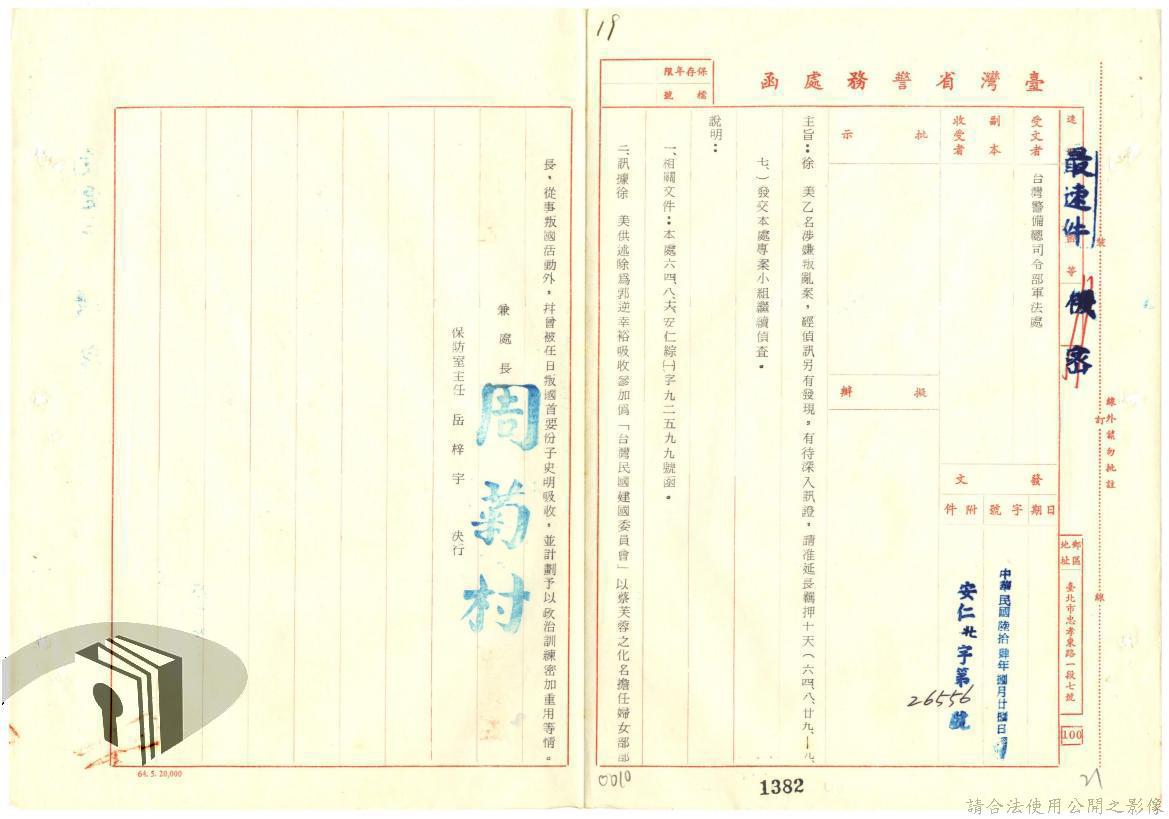 19
臺灣省警務處函
保存年限
檔號
速別
最速件
密等
機密
受文者
台灣警備總司令部軍法處
副本收受者
批示
擬辦
發文
日期
字號
附件
中華民國陸拾肆年捌月廿
安仁北字第26556號
郵區地址
臺北市忠孝東路一段七號
100
裝
訂
線
線外請勿批註
主旨：徐 美乙名涉嫌叛亂案，經偵訊另有發現，有待深入訊證，請准延長羈押十天（六四、八、廿九、—九、
七、）發交本處專案小組繼續偵查。
說明：
一、相關文件：本處六四、八、六、安仁綜㈠字九二五九九號函。
二、訊據徐 美供述除為郭逆幸裕吸收參加偽「台灣民國建國委員會」以蔡芙蓉之化名擔任婦女部部
長，從事叛國活動外，并曾被在日叛國首要份子史明吸收，並計劃予以政治訓練密加重用等情。
兼處長 周菊村
保防室主任 岳梓宇 決行
64. 5. 20,000
0010
1382
21
請合法使用公開之影像